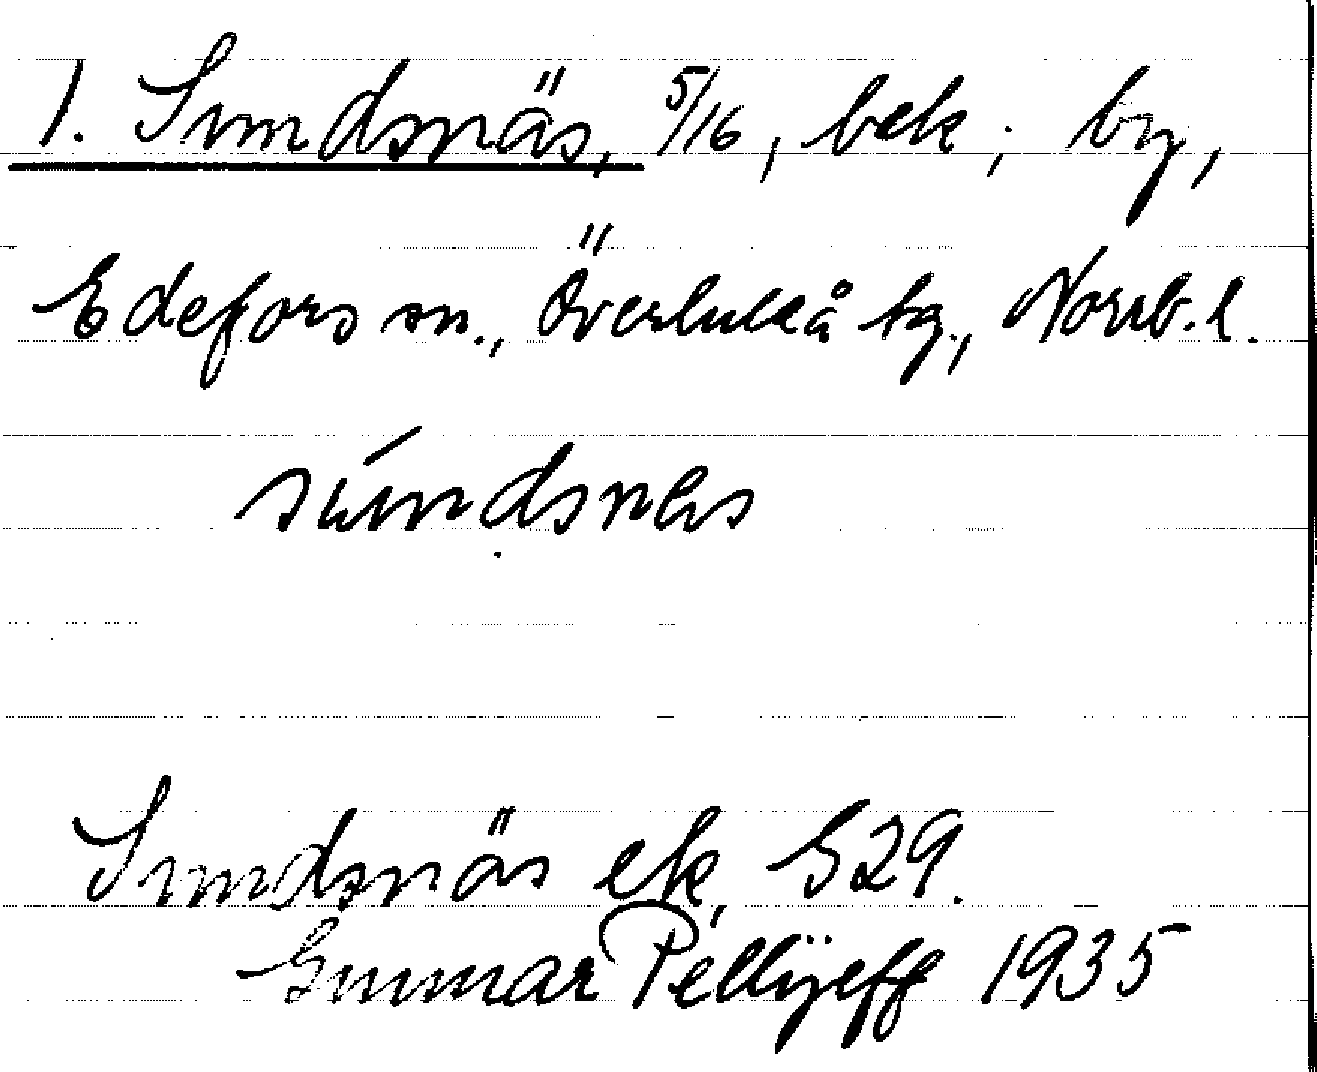 1. Sundsnäs, 5/16, bek; by,
Edefors sn., Överluleå tg., Norrb. l.
súndsnes
Sundsnäs ek, G29.
Gunnar Pellijeff 1935